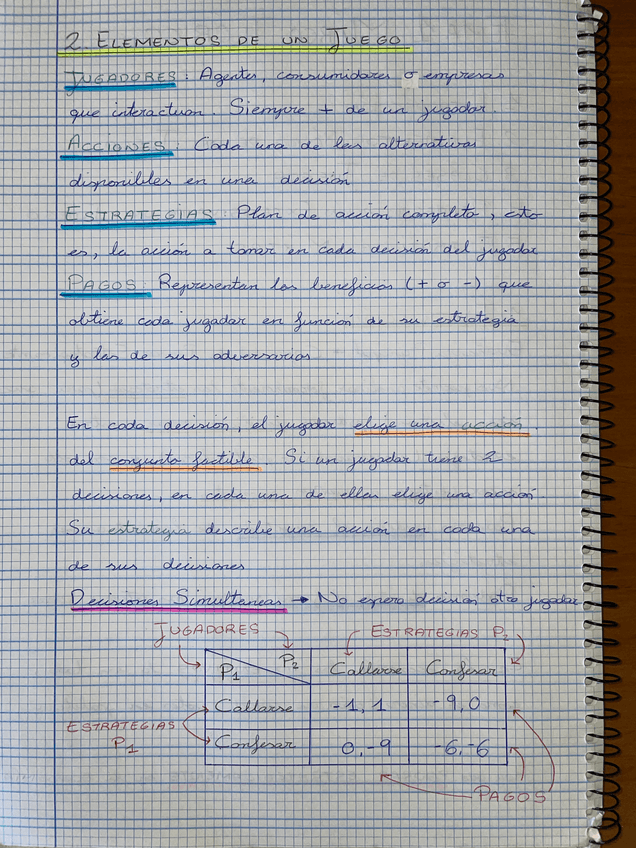 2. ELEMENTOS DE UN JUEGO
JUGADORES: Agentes, consumidores o empresas
que interactuan. Siempre + de un jugador.
ACCIONES: Cada una de las alternativas
disponibles en una decisión
ESTRATEGIAS: Plan de acción completo, esto
es, la acción a tomar en cada decisión del jugador
PAGOS: Representan los beneficios (+ o -) que
obtiene cada jugador en función de su estrategia
y las de sus adversarios
En cada decisión, el jugador elige una acción
del conjunto factible. Si un jugador tiene 2
decisiones, en cada una de ellas elige una acción.
Su estrategia describe una acción en cada una
de sus decisiones
Decisiones Simultaneas → No espera decisión otro jugador
JUGADORES ESTRATEGIAS P2
P1 P2 Callarse Confesar
Callarse -1,1 -9,0
ESTRATEGIAS P1
Confesar 0,-9 -6,-6
PAGOS